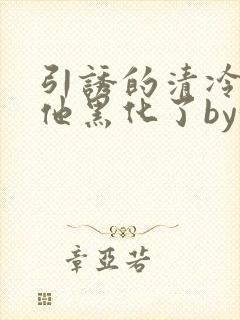 引誘的清冷
他黑化了by
章亚若